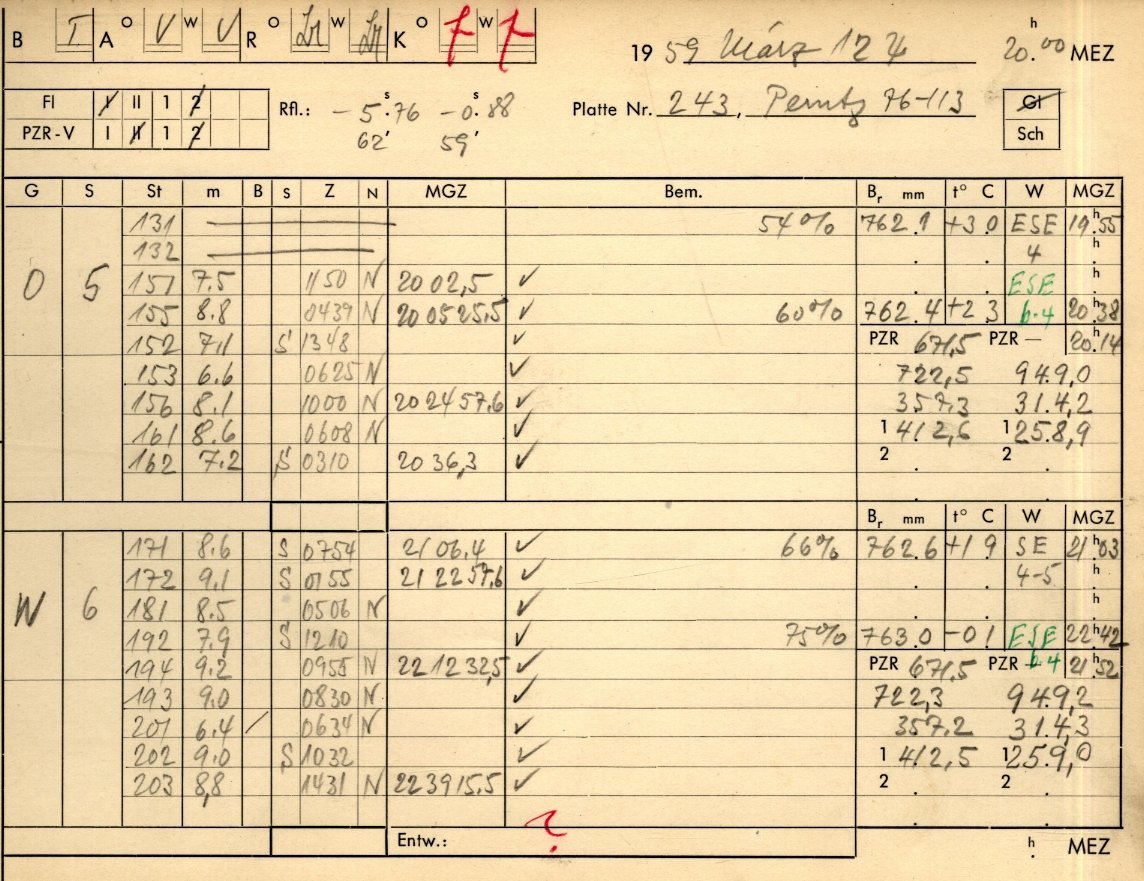 B I A O V W V R O Lr W Lr K O 7 W 7
19 59 März 12 4 20.00 h MEZ
Fl I II 1 2 Rfl.: – 5.s76 –0.s88 Platte Nr. 243, Pernitz 76-113 Gl
PZR-V I II 1 2 62' 59' Sch
G S St m B S Z N MGZ Bem. Br mm t° C W MGZ
131 54% 762.1 +3.0 ESE 19.h55
132 4 h
O 5 151 7.5 1150 N 20 02,5 ✓ ESE h
155 8.8 0439 N 20 05 25,5 ✓ 60% 762.4 +2.3 b.4 20.h38
152 7.1 S 1348 ✓ PZR 671,5 PZR – 20.h14
153 6.6 0625 N ✓ 722,5 949,0
156 8.1 1000 N 20 24 57,6 ✓ 357,3 31.4,2
161 8.6 0608 N ✓ 1 412,6 1 25.8,9
162 7.2 S 0310 20 36,3 ✓ 2 2
Br mm t° C W MGZ
171 8.6 S 0754 21 06,4 ✓ 66% 762.6 +1.9 SE 21.h03
172 9.1 S 0155 21 22 57,6 ✓ 4-5 h
W 6 181 8.5 0506 N ✓ h
192 7.9 S 1210 ✓ 75% 763.0 –0.1 ESE 22.h42
194 9.2 0955 N 22 12 32,5 ✓ PZR 671,5 PZR b.4 21.h52
193 9.0 0830 N ✓ 722,3 949,2
201 6.4 / 0634 N ✓ 357.2 31.4,3
202 9.0 S 1032 ✓ 1 412,5 1 25.9,0
203 8,8 1431 N 22 39 15,5 ✓ 2 2
Entw.: ? h MEZ